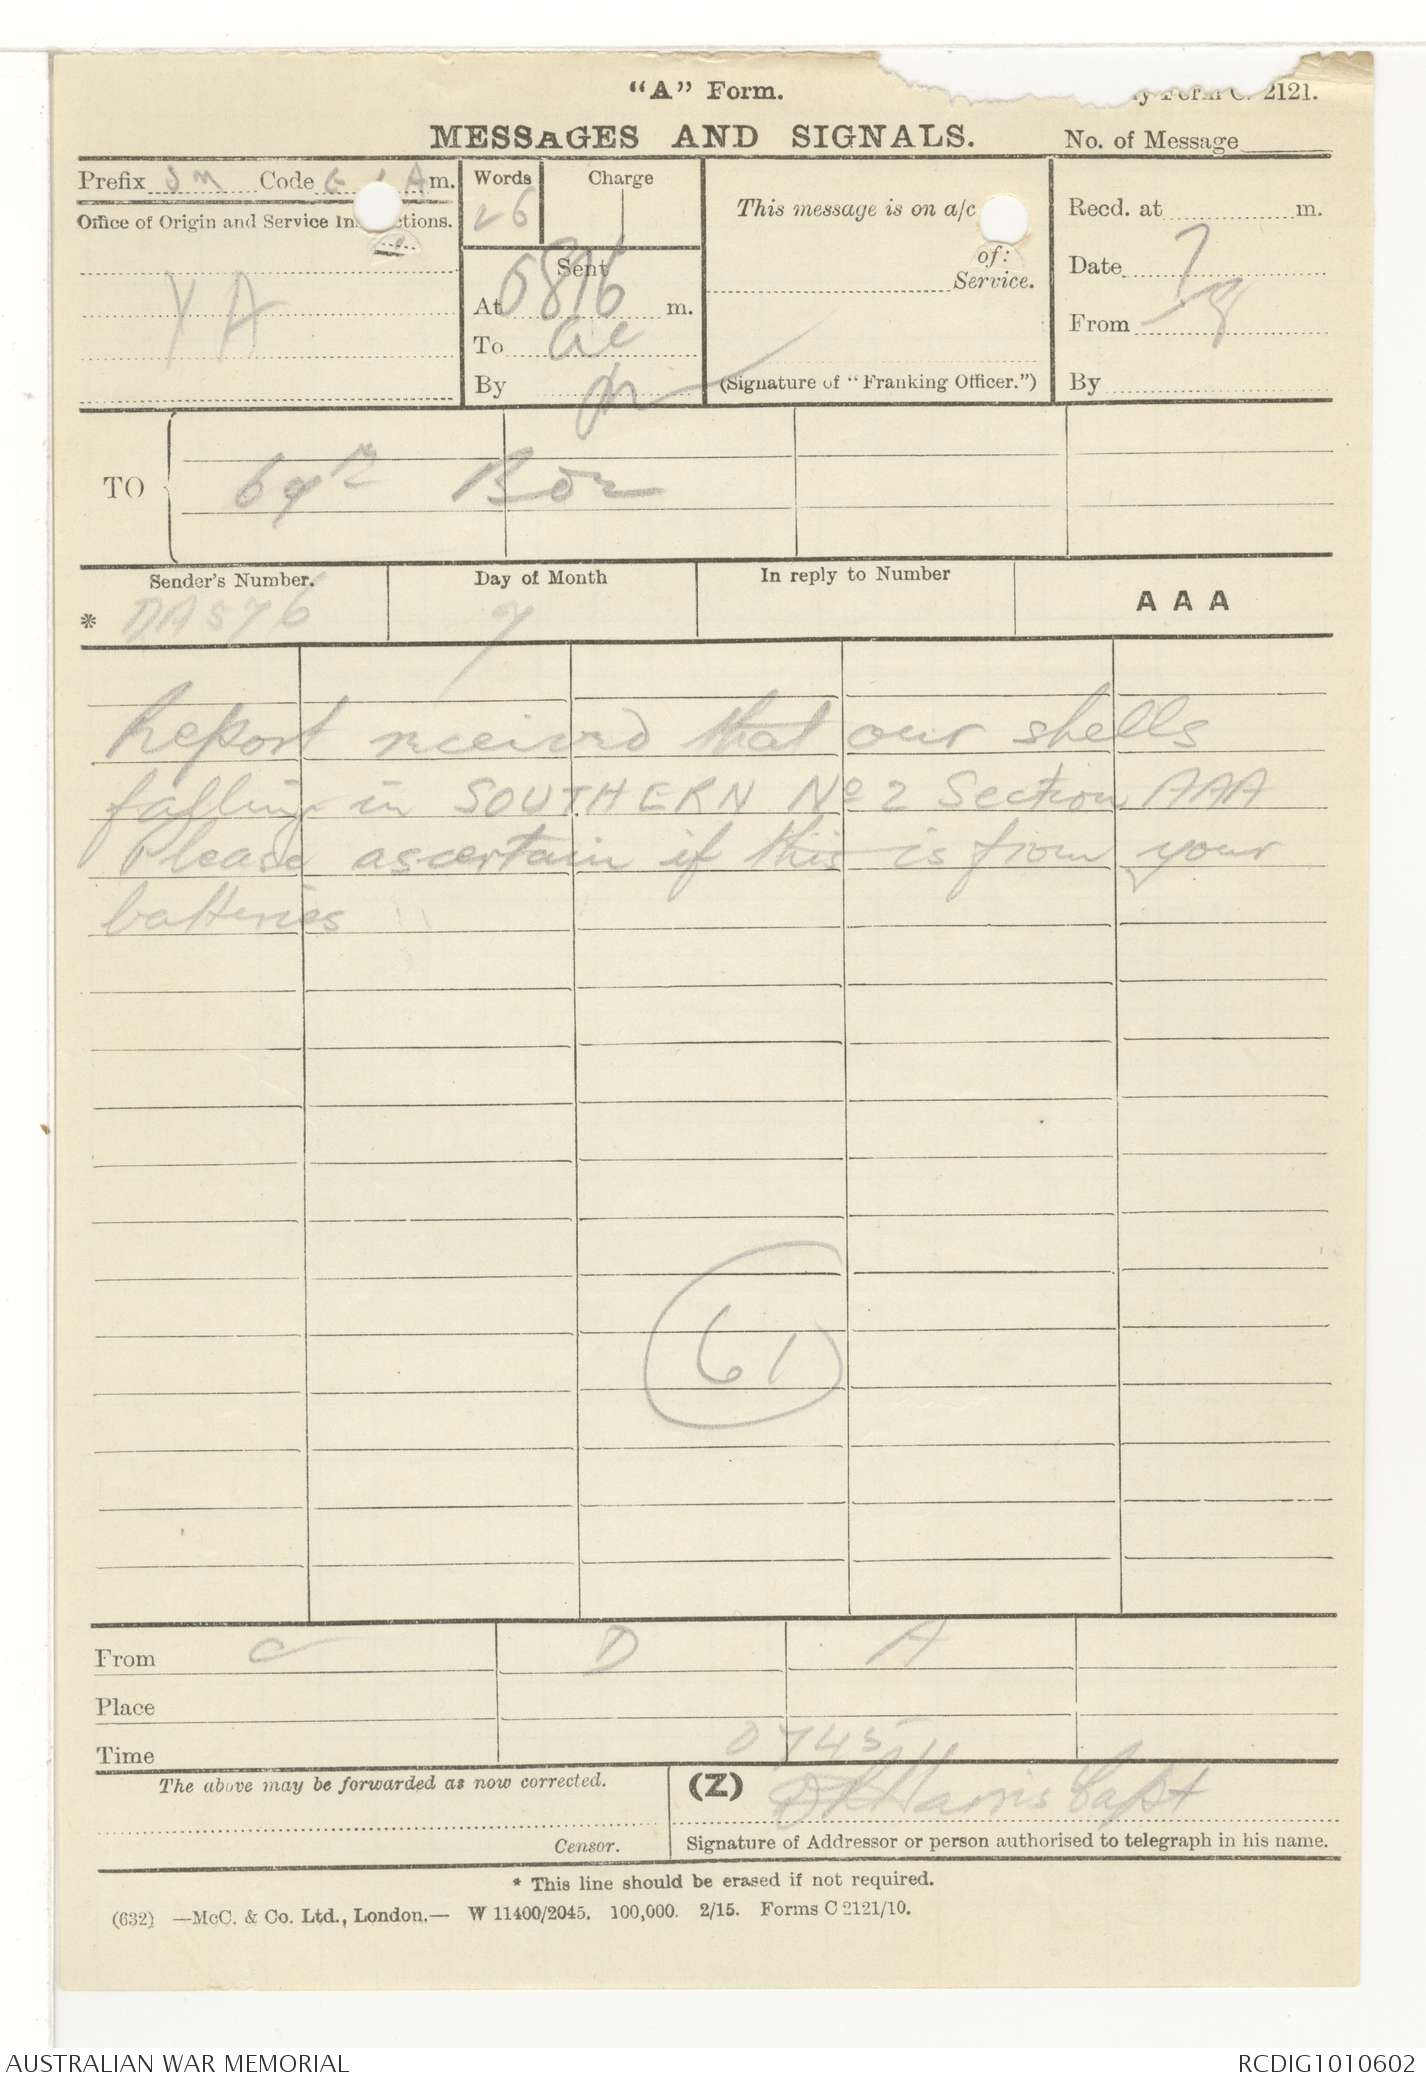 "A" Form.
2121.
MESSAGES AND SIGNALS.
No. of Message
Prefix SM Code m.
Words
26
Charge
This message is on a/c
of:
Service.
(Signature of "Franking Officer.")
Recd. at m.
Date 7
From 8
By
Office of Origin and Service
YA
Sent
At m.
To
By
TO
69th Bde
Sender's Number.
Day of Month
In reply to Number
AAA
* DA576
7
Report received that our shells
falling in SOUTHERN No 2 Section AAA
Please ascertain if this is from your
batteries
61
From
D A
Place
Time
0745
The above may be forwarded as now corrected.
(Z) Harris Capt
Censor.
Signature of Addressor or person authorised to telegraph in his name.
* This line should be erased if not required.
(632) —McC. & Co. Ltd., London.— W 11400/2045. 100,000. 2/15. Forms C 2121/10.
AUSTRALIAN WAR MEMORIAL
RCDIG1010602